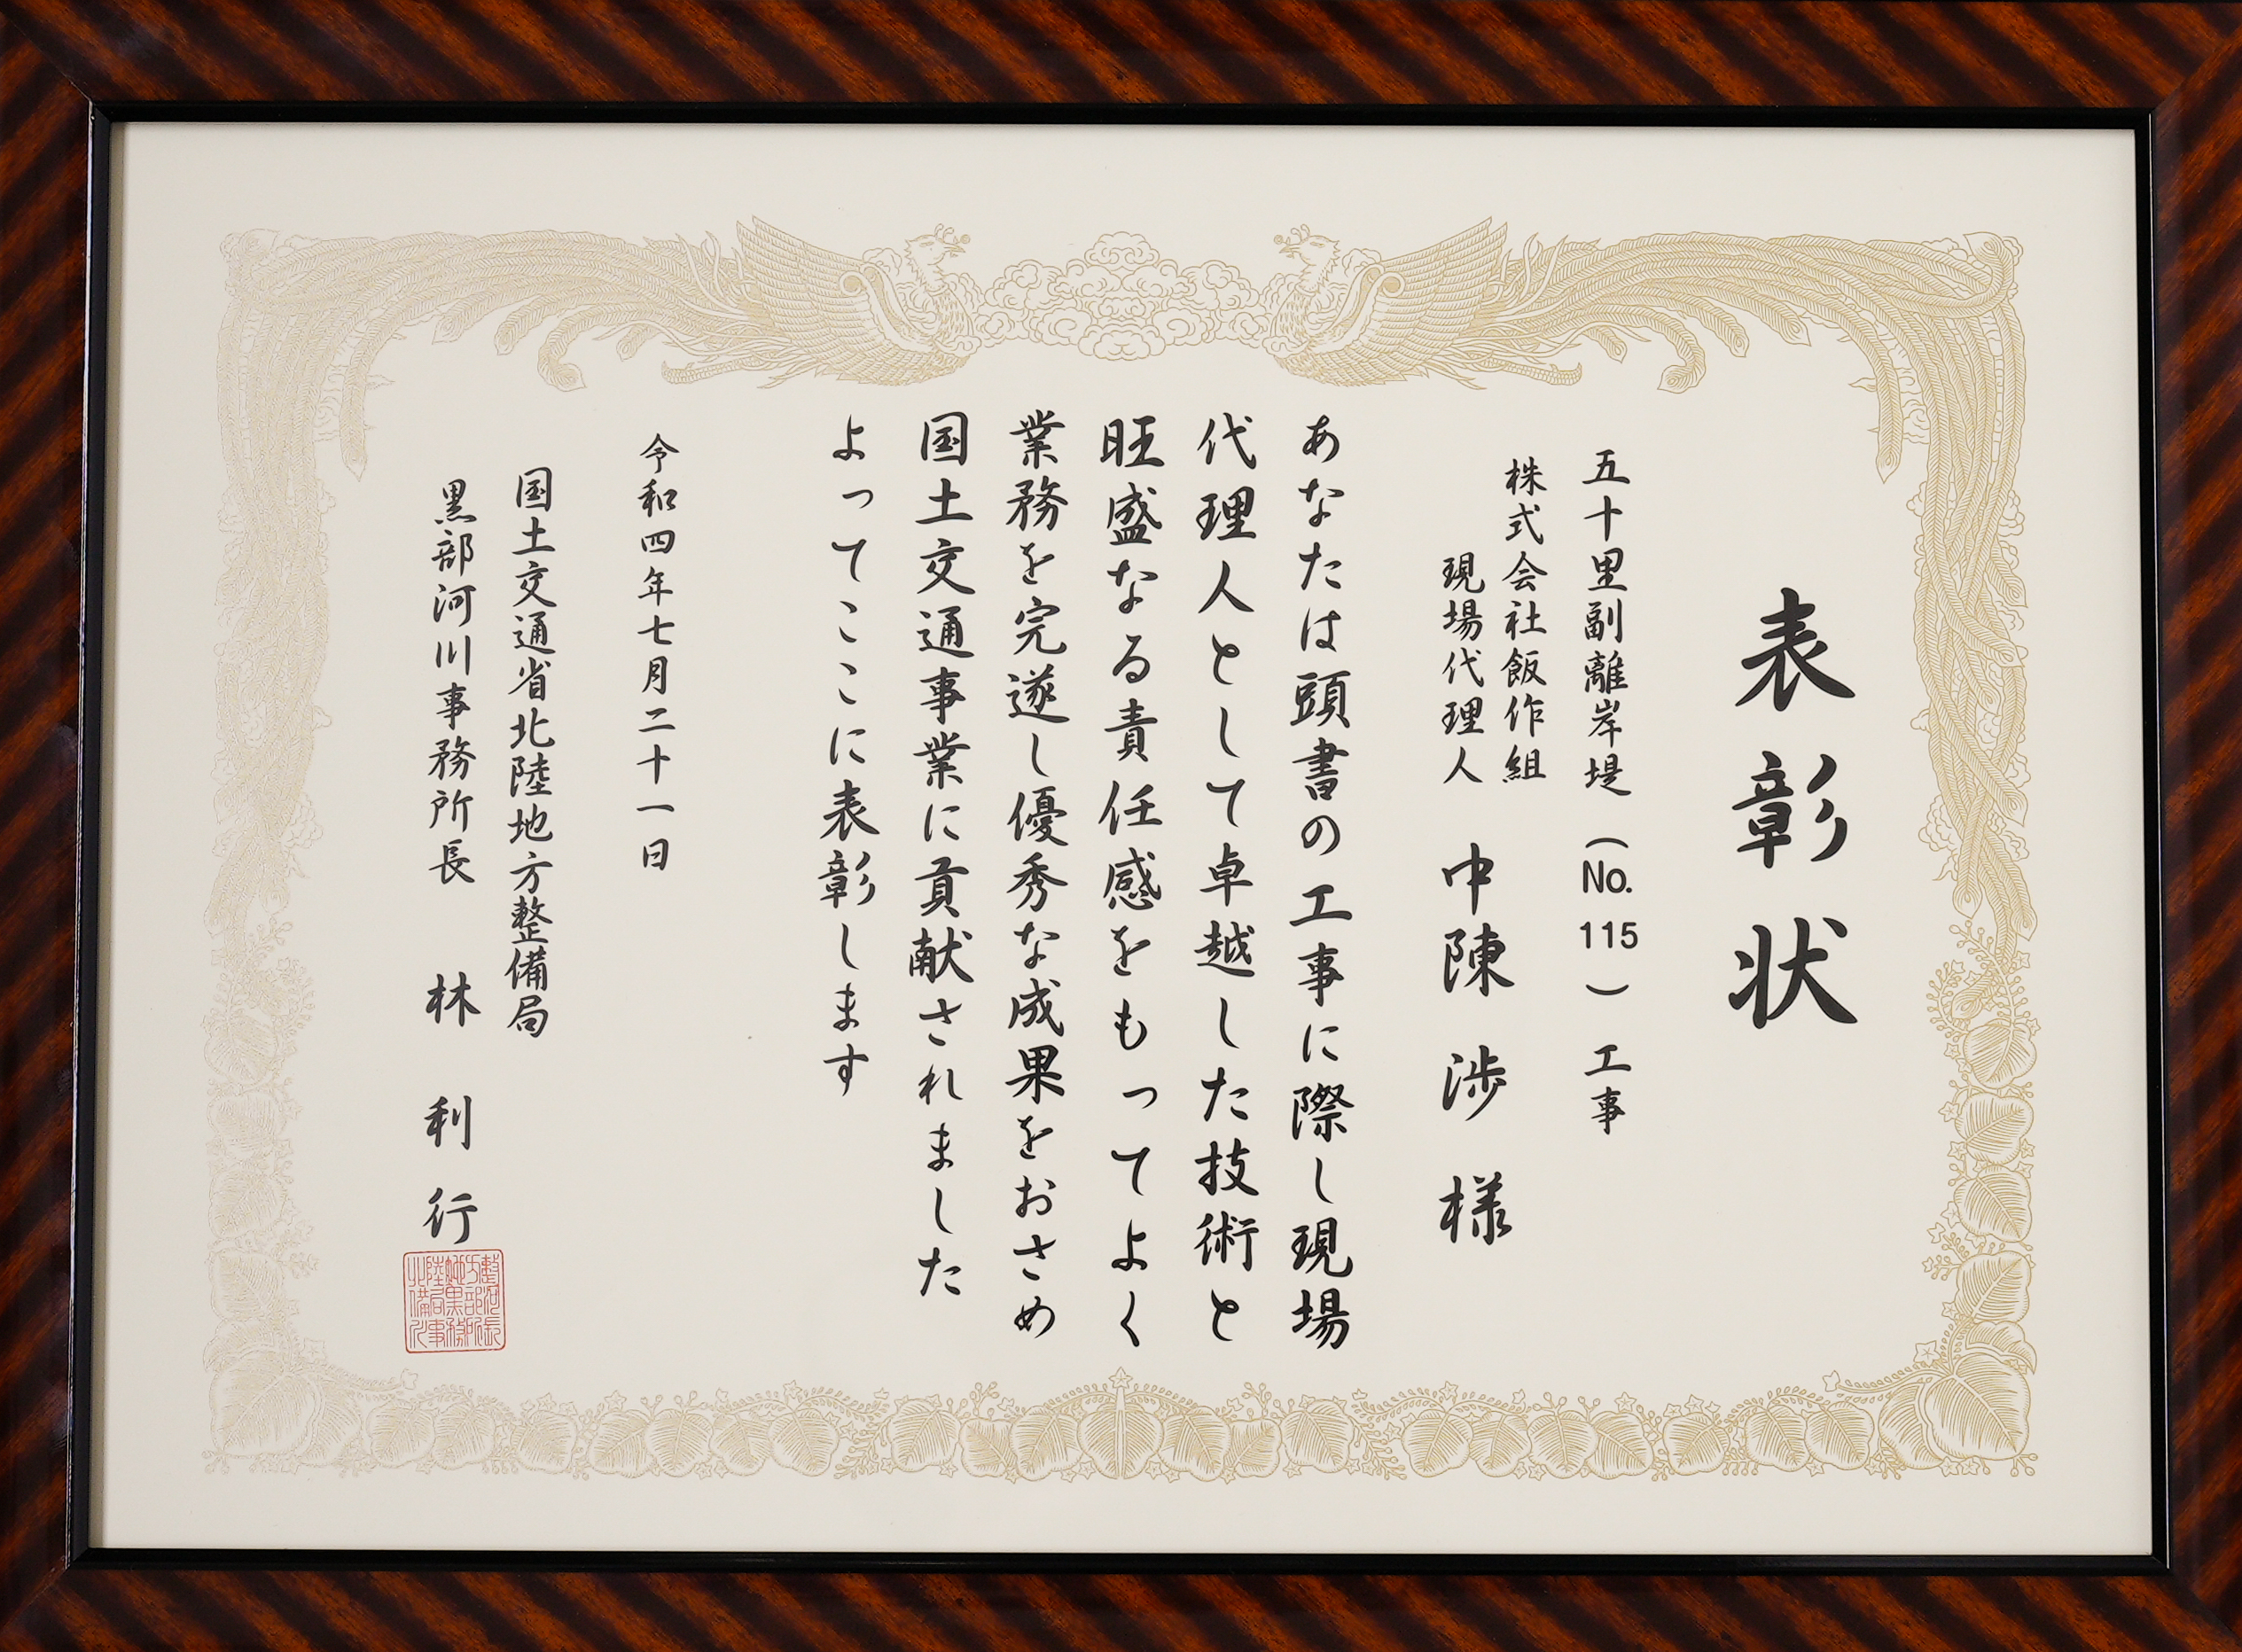 表彰状
五十里副離岸堤（No.115）工事
株式会社飯作組
現場代理人 中陳 渉 様
あなたは頭書の工事に際し現場
代理人として卓越した技術と
旺盛なる責任感をもってよく
業務を完遂し優秀な成果をおさめ
国土交通事業に貢献されました
よってここに表彰します
令和四年七月二十一日
国土交通省北陸地方整備局
黒部河川事務所長 林 利行